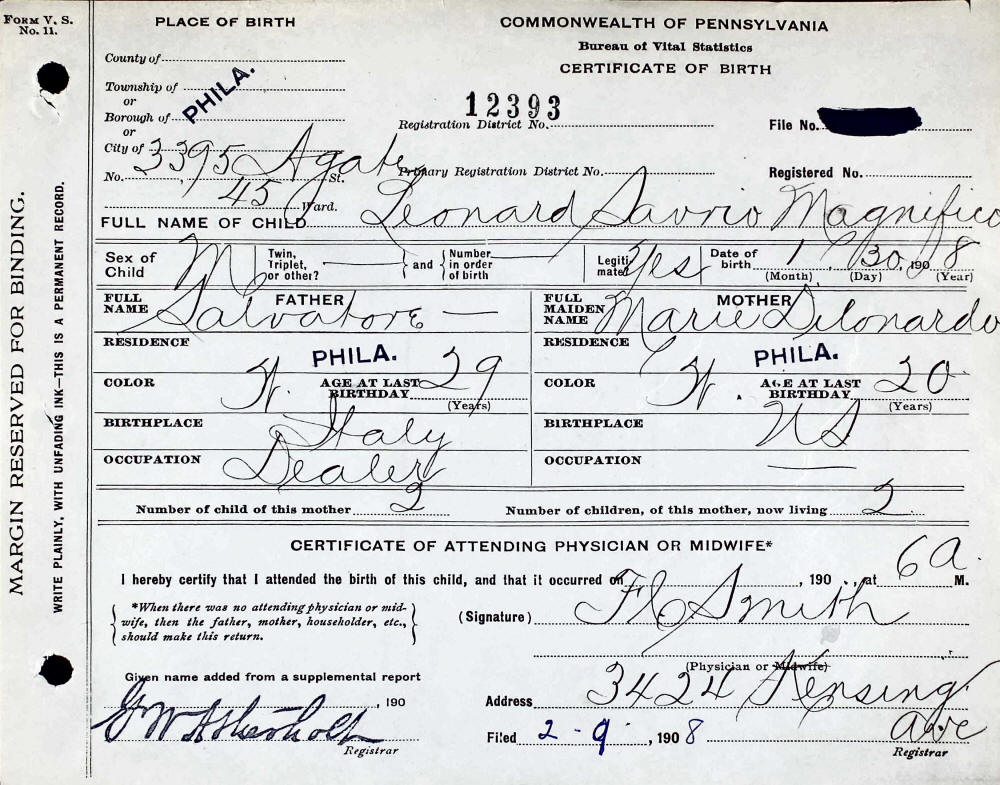 FORM V. S.
No. 11.
PLACE OF BIRTH
COMMONWEALTH OF PENNSYLVANIA
Bureau of Vital Statistics
CERTIFICATE OF BIRTH
County of
Township of
or
Borough of PHILA.
or
City of
12393
Registration District No.
File No.
No. 3395 Agate St.
Primary Registration District No.
Registered No.
45 Ward.
FULL NAME OF CHILD Leonard Savrio Magnifico
Sex of Child M
Twin, Triplet, or other?
and
Number in order of birth
Legitimate? Yes
Date of birth 1, 30, 1908
(Month) (Day) (Year)
FATHER
FULL NAME Salvatore —
RESIDENCE
PHILA.
COLOR W.
AGE AT LAST BIRTHDAY 29
(Years)
BIRTHPLACE Italy
OCCUPATION Dealer
MOTHER
FULL MAIDEN NAME Marie Dilonardo
RESIDENCE
PHILA.
COLOR W.
AGE AT LAST BIRTHDAY 20
(Years)
BIRTHPLACE US
OCCUPATION —
Number of child of this mother 2
Number of children, of this mother, now living 2
CERTIFICATE OF ATTENDING PHYSICIAN OR MIDWIFE*
I hereby certify that I attended the birth of this child, and that it occurred on , 190 , at 6 a. M.
*When there was no attending physician or mid-
wife, then the father, mother, householder, etc.,
should make this return.
(Signature) F C Smith
(Physician or Midwife)
Given name added from a supplemental report
, 190
Registrar
Address 3424 Kensing
ave
Filed 2-9, 1908
Registrar
MARGIN RESERVED FOR BINDING.
WRITE PLAINLY, WITH UNFADING INK—THIS IS A PERMANENT RECORD.